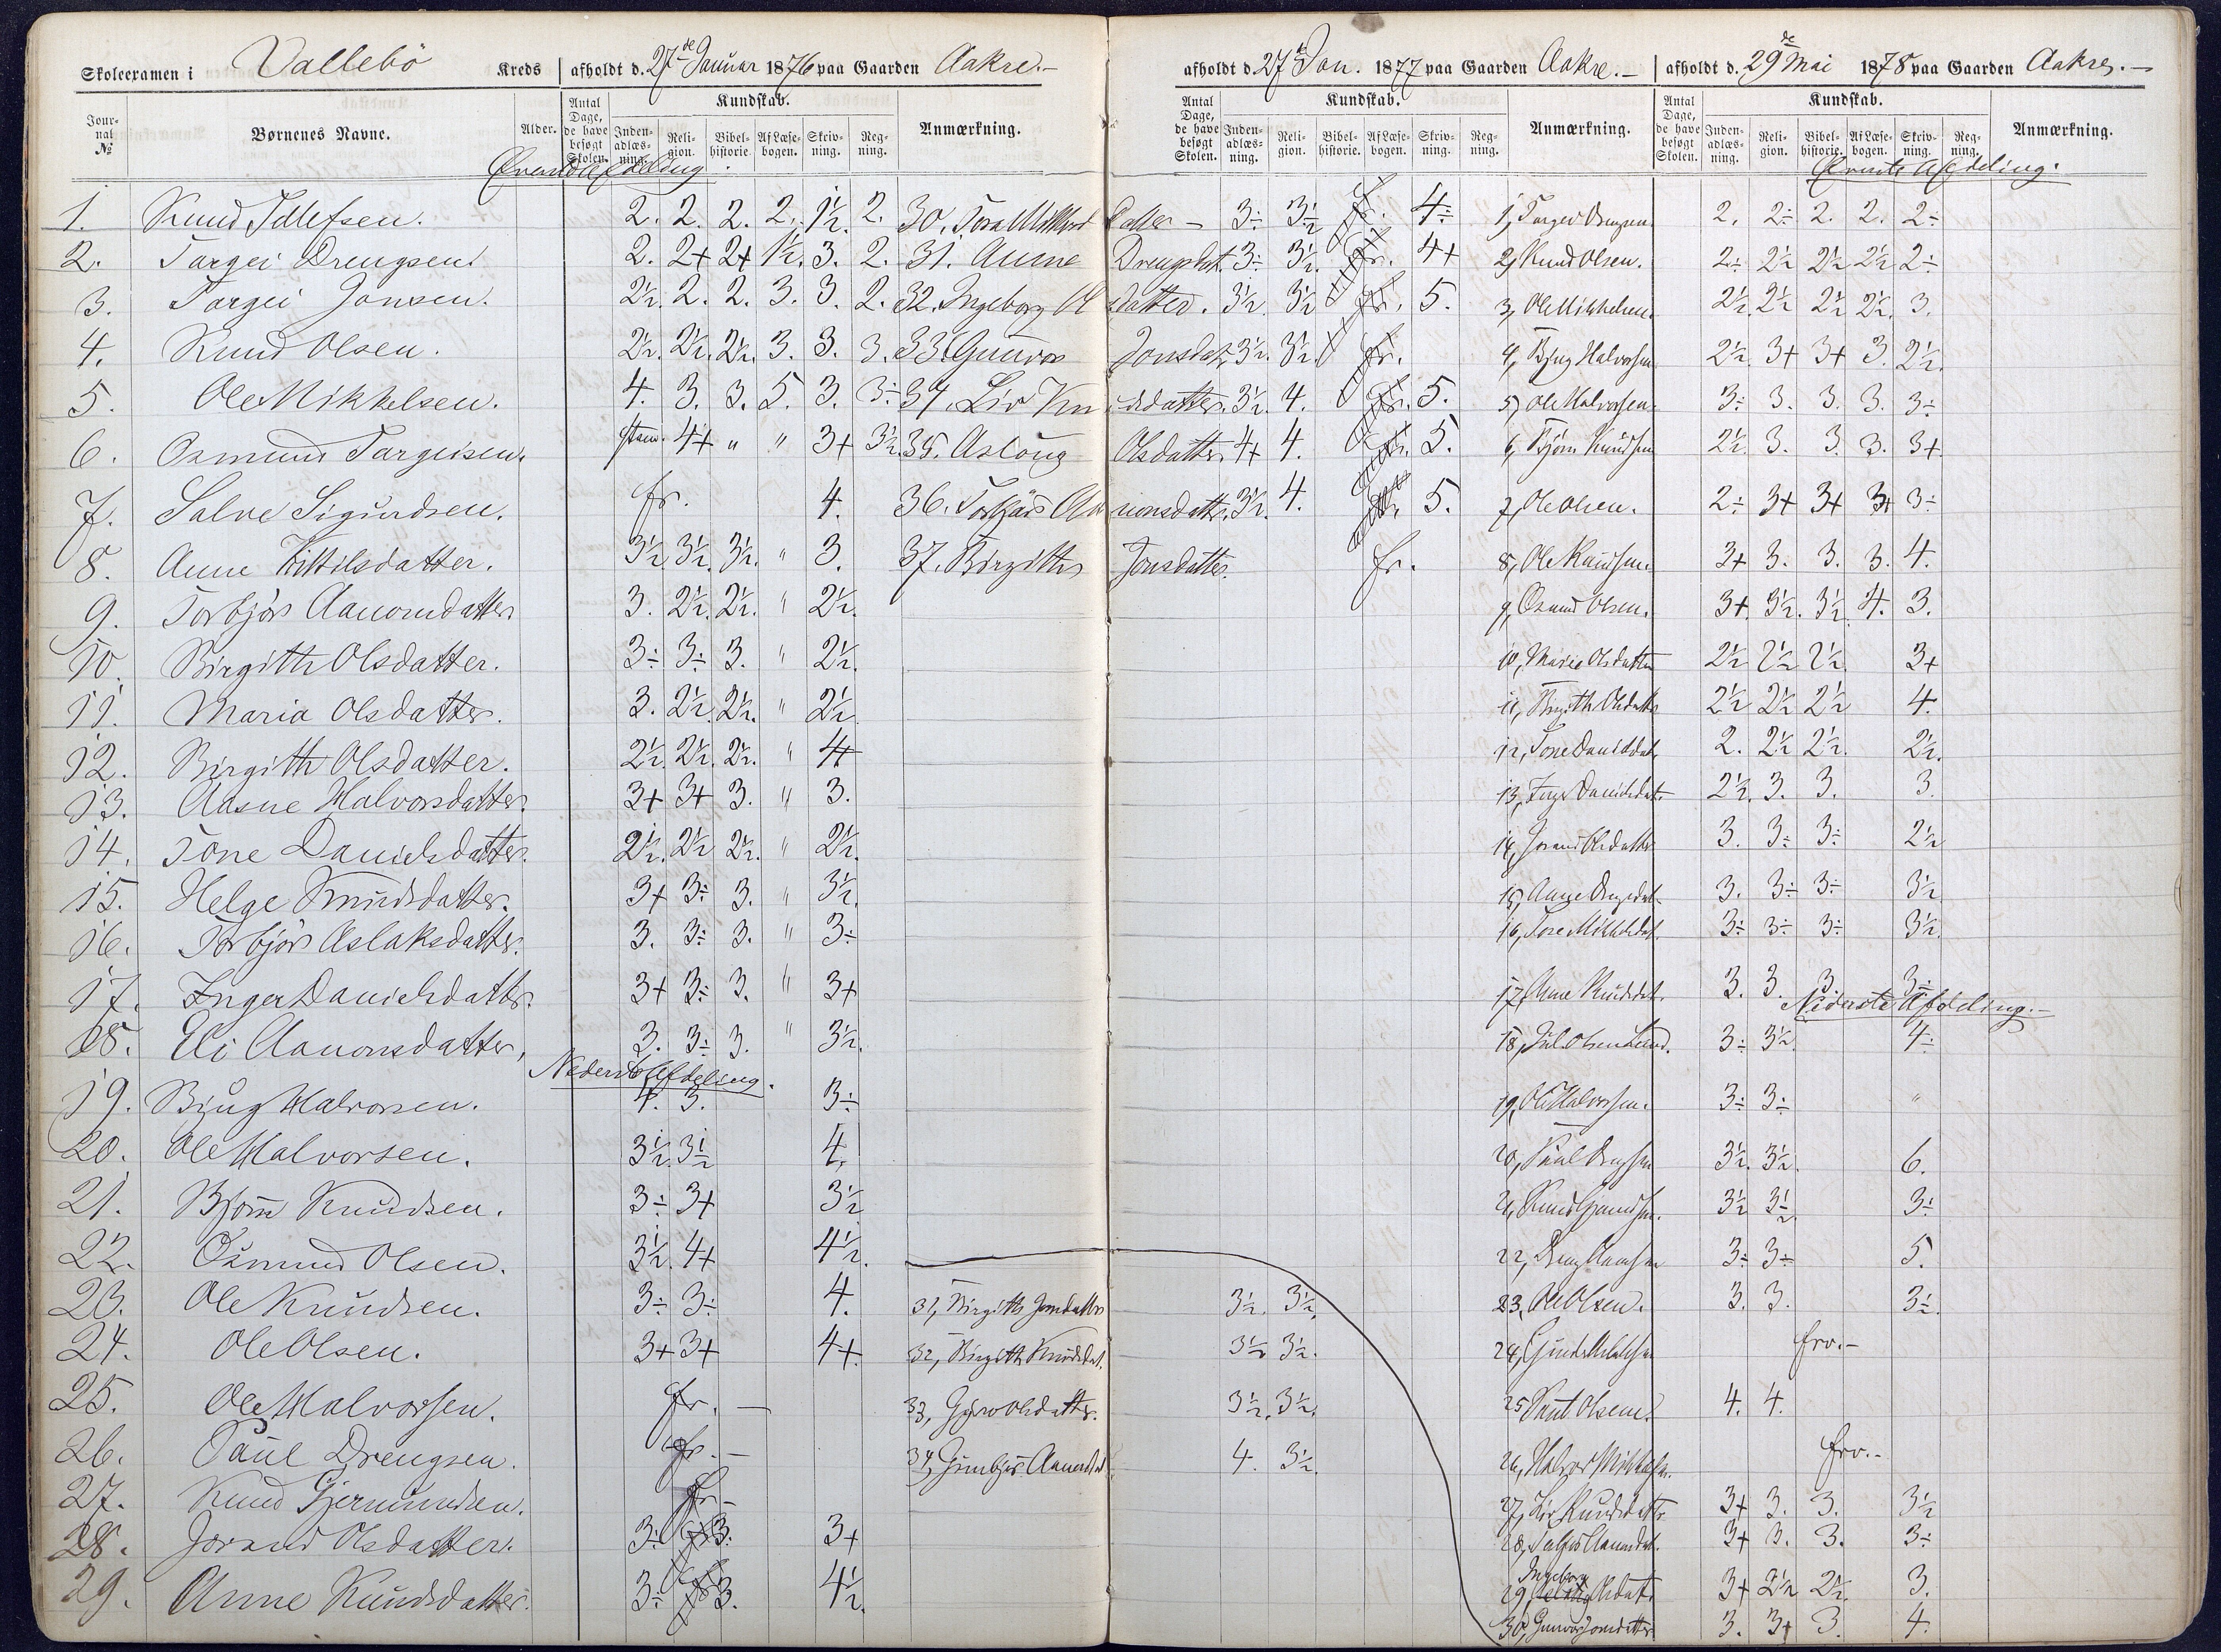 Skoleexamen i Vallebö Kreds afholdt d. 27de Januar 1876 paa Gaarden Aakre.-
Jour-nal № Børnenes Navne. Alder. Antal Dage, de have besøgt Skolen. Kundskab. Inden-adlæs-ning. Reli-gion. Bibel-historie. Af Læse-bogen. Skriv-ning. Reg-ning. Anmærkning.
1. Knud Tellefsen. 2. 2. 2. 2. 1½. 2.
2. Targei Drengsen. 2. 2+ 2+ 1½. 3. 2.
3. Targei Jonsen. 2½. 2. 2. 3. 3. 2.
4. Knud Olsen. 2½. 2½. 2½. 3. 3. 3.
5. Ole Mikkelsen. 4. 3. 3. 5. 3. 3÷
6. Osmund Targeisen. 4+ " " 3+ 3½.
7. Salve Sigurdsen. fr. 4.
8. Anne Kittilsdatter. 3½ 3½. 3½. " 3.
9. Torbjör Aanonsdatter. 3. 2½. 2½. " 2½.
10. Birgitte Olsdatter. 3÷ 3÷ 3. " 2½.
11. Maria Olsdatter. 3. 2½. 2½. " 2½
12. Birgitte Olsdatter. 2½. 2½. 2½. " 4
13. Aasne Halvorsdatter. 3+ 3+ 3. " 3.
14. Tone Danielsdatter. 2½. 2½ 2½. " 2½.
15. Helge Knudsdatter. 3+ 3÷ 3. " 3½.
16. Torbjör Aslaksdatter. 3. 3÷ 3. " 3÷
17. Inger Danielsdatter. 3+ 3÷ 3. " 3+
18. Eli Aanonsdatter, 3. 3÷ 3. " 3½.
Nederste Afdeling.
19. Bjug Halvorsen. 4. 3. 3÷
20. Ole Halvorsen. 3½ 3½ 4.
21. Bjorn Knudsen. 3÷ 3+ 3½
22. Osmund Olsen. 3½. 4+ 4½.
23. Ole Knudsen. 3÷ 3÷ 4.
24. Ole Olsen. 3+ 3+ 4+.
25. Ole Halvorsen. fr. -
26. Paul Drengsen. fr. -
27. Knud Gjermundsen. fr -
28. Jorand Olsdatter. 3÷ 3. 3+
29. Anne Knudsdatter. 3÷ 3. 4½.
afholdt d. 27de Jan. 1877 paa Gaarden Aakre.-
Antal Dage, de have besøgt Skolen. Kundskab. Inden-adlæs-ning. Reli-gion. Bibel-historie. Af Læse-bogen. Skriv-ning. Reg-ning. Anmærkning.
31. Anne Drengsdat. 3÷ 3½. fr. 4+
32. Ingeborg Olsdatter. 3½. 3½ fr. 5.
33. Gunvor Jonsdat. 3½. 3½ fr.
34. Liv Knudsdatter. 3½. 4. fr. 5.
35. Aslaug Olsdatter. 4+ 4. fr. 5.
37. Birgitte Jonsdatter. fr.
31, Birgitte Jonsdatter 3½. 3½.
32, Birgitte Knudsdat. 3½ 3½.
33, Gyro Olsdatter. 3½. 3½.
4. 3½.
afholdt d. 29de Mai 1878 paa Gaarden Aakre.-
Antal Dage, de have besøgt Skolen. Kundskab. Inden-adlæs-ning. Reli-gion. Bibel-historie. Af Læse-bogen. Skriv-ning. Reg-ning. Anmærkning.
Øverste Afdeling.
1, Targei Drengsen. 2. 2÷ 2. 2. 2÷
2, Knud Olsen. 2÷ 2½ 2½ 2½ 2÷
3, Ole Mikkelsen. 2½. 2½ 2½ 2½. 3.
4, Bjug Halvorsen 2½ 3+ 3+ 3. 2½.
5, Ole Halvorsen. 3÷ 3. 3. 3. 3÷
6, Björn Knudsen 2½. 3. 3. 3. 3+
7, Ole Olsen. 2÷ 3+ 3+ 3+ 3÷
8, Ole Knudsen. 3+ 3. 3. 3. 4.
9, Osmund Olsen. 3+. 3½. 3½. 4. 3.
10, Marie Olsdatter 2½ 2½ 2½ 3+
11, Birgitte Olsdatter 2½ 2½ 2½ 4.
12, Tone Danielsdat. 2. 2½ 2½. 2½.
13, Inger Danielsdat. 2½. 3. 3. 3.
14, Jorand Olsdatter 3. 3÷ 3÷ 2½
15, Anne Drengsdat. 3. 3÷ 3÷ 3½
16, Tore Mikkelsdat. 3÷ 3÷ 3÷ 3½.
17, Anne Knudsdat. 3. 3. 3. 3÷
Nederste Afdeling.-
18, Olsen Lund. 3÷ 3½. 4÷
19, Ole Halvorsen. 3÷ 3÷ "
20, Paul Drengsen 3½. 3½. 6.
21, Knud Gjermundsen. 3½ 3½. 3÷
22, 3÷ 3÷ 5.
23, Ole Olsen. 3. 3. 3½.
24, fra.-
25, Knut Olsen. 4. 4.
26, Halvor Mikkelsen. fra.-
27, Liv Knudsdatter. 3+ 3. 3. 3½
28, 3+ 3. 3. 3÷
29, Ingeborg Olsdat. 3+ 2½ 2½. 3.
30, Gunvor Jonsdatter 3. 3+ 3. 4.